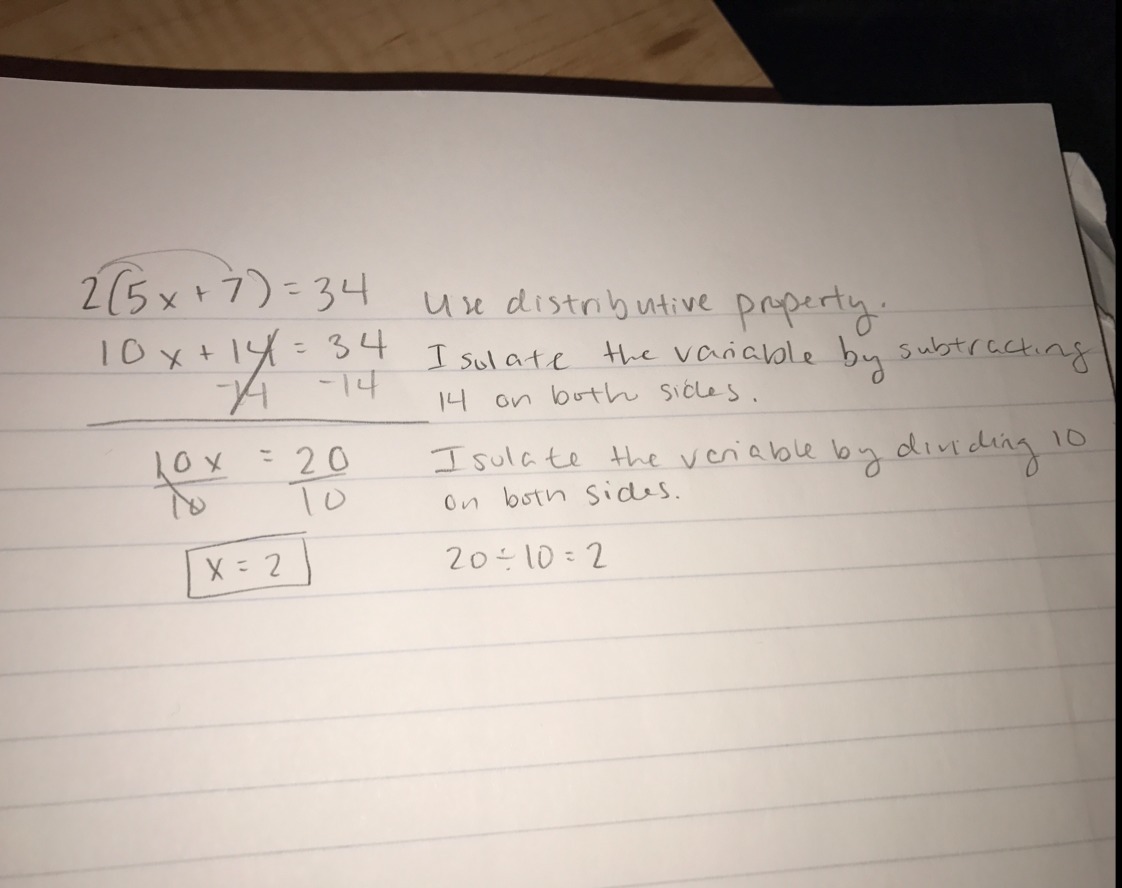 2(5x+7)=34 Use distributive property.
10x+14=34 Isolate the variable by subtracting
-14 -14 14 on both sides.
10x = 20 Isolate the variable by dividing 10
10 10 on both sides.
x=2 20÷10=2